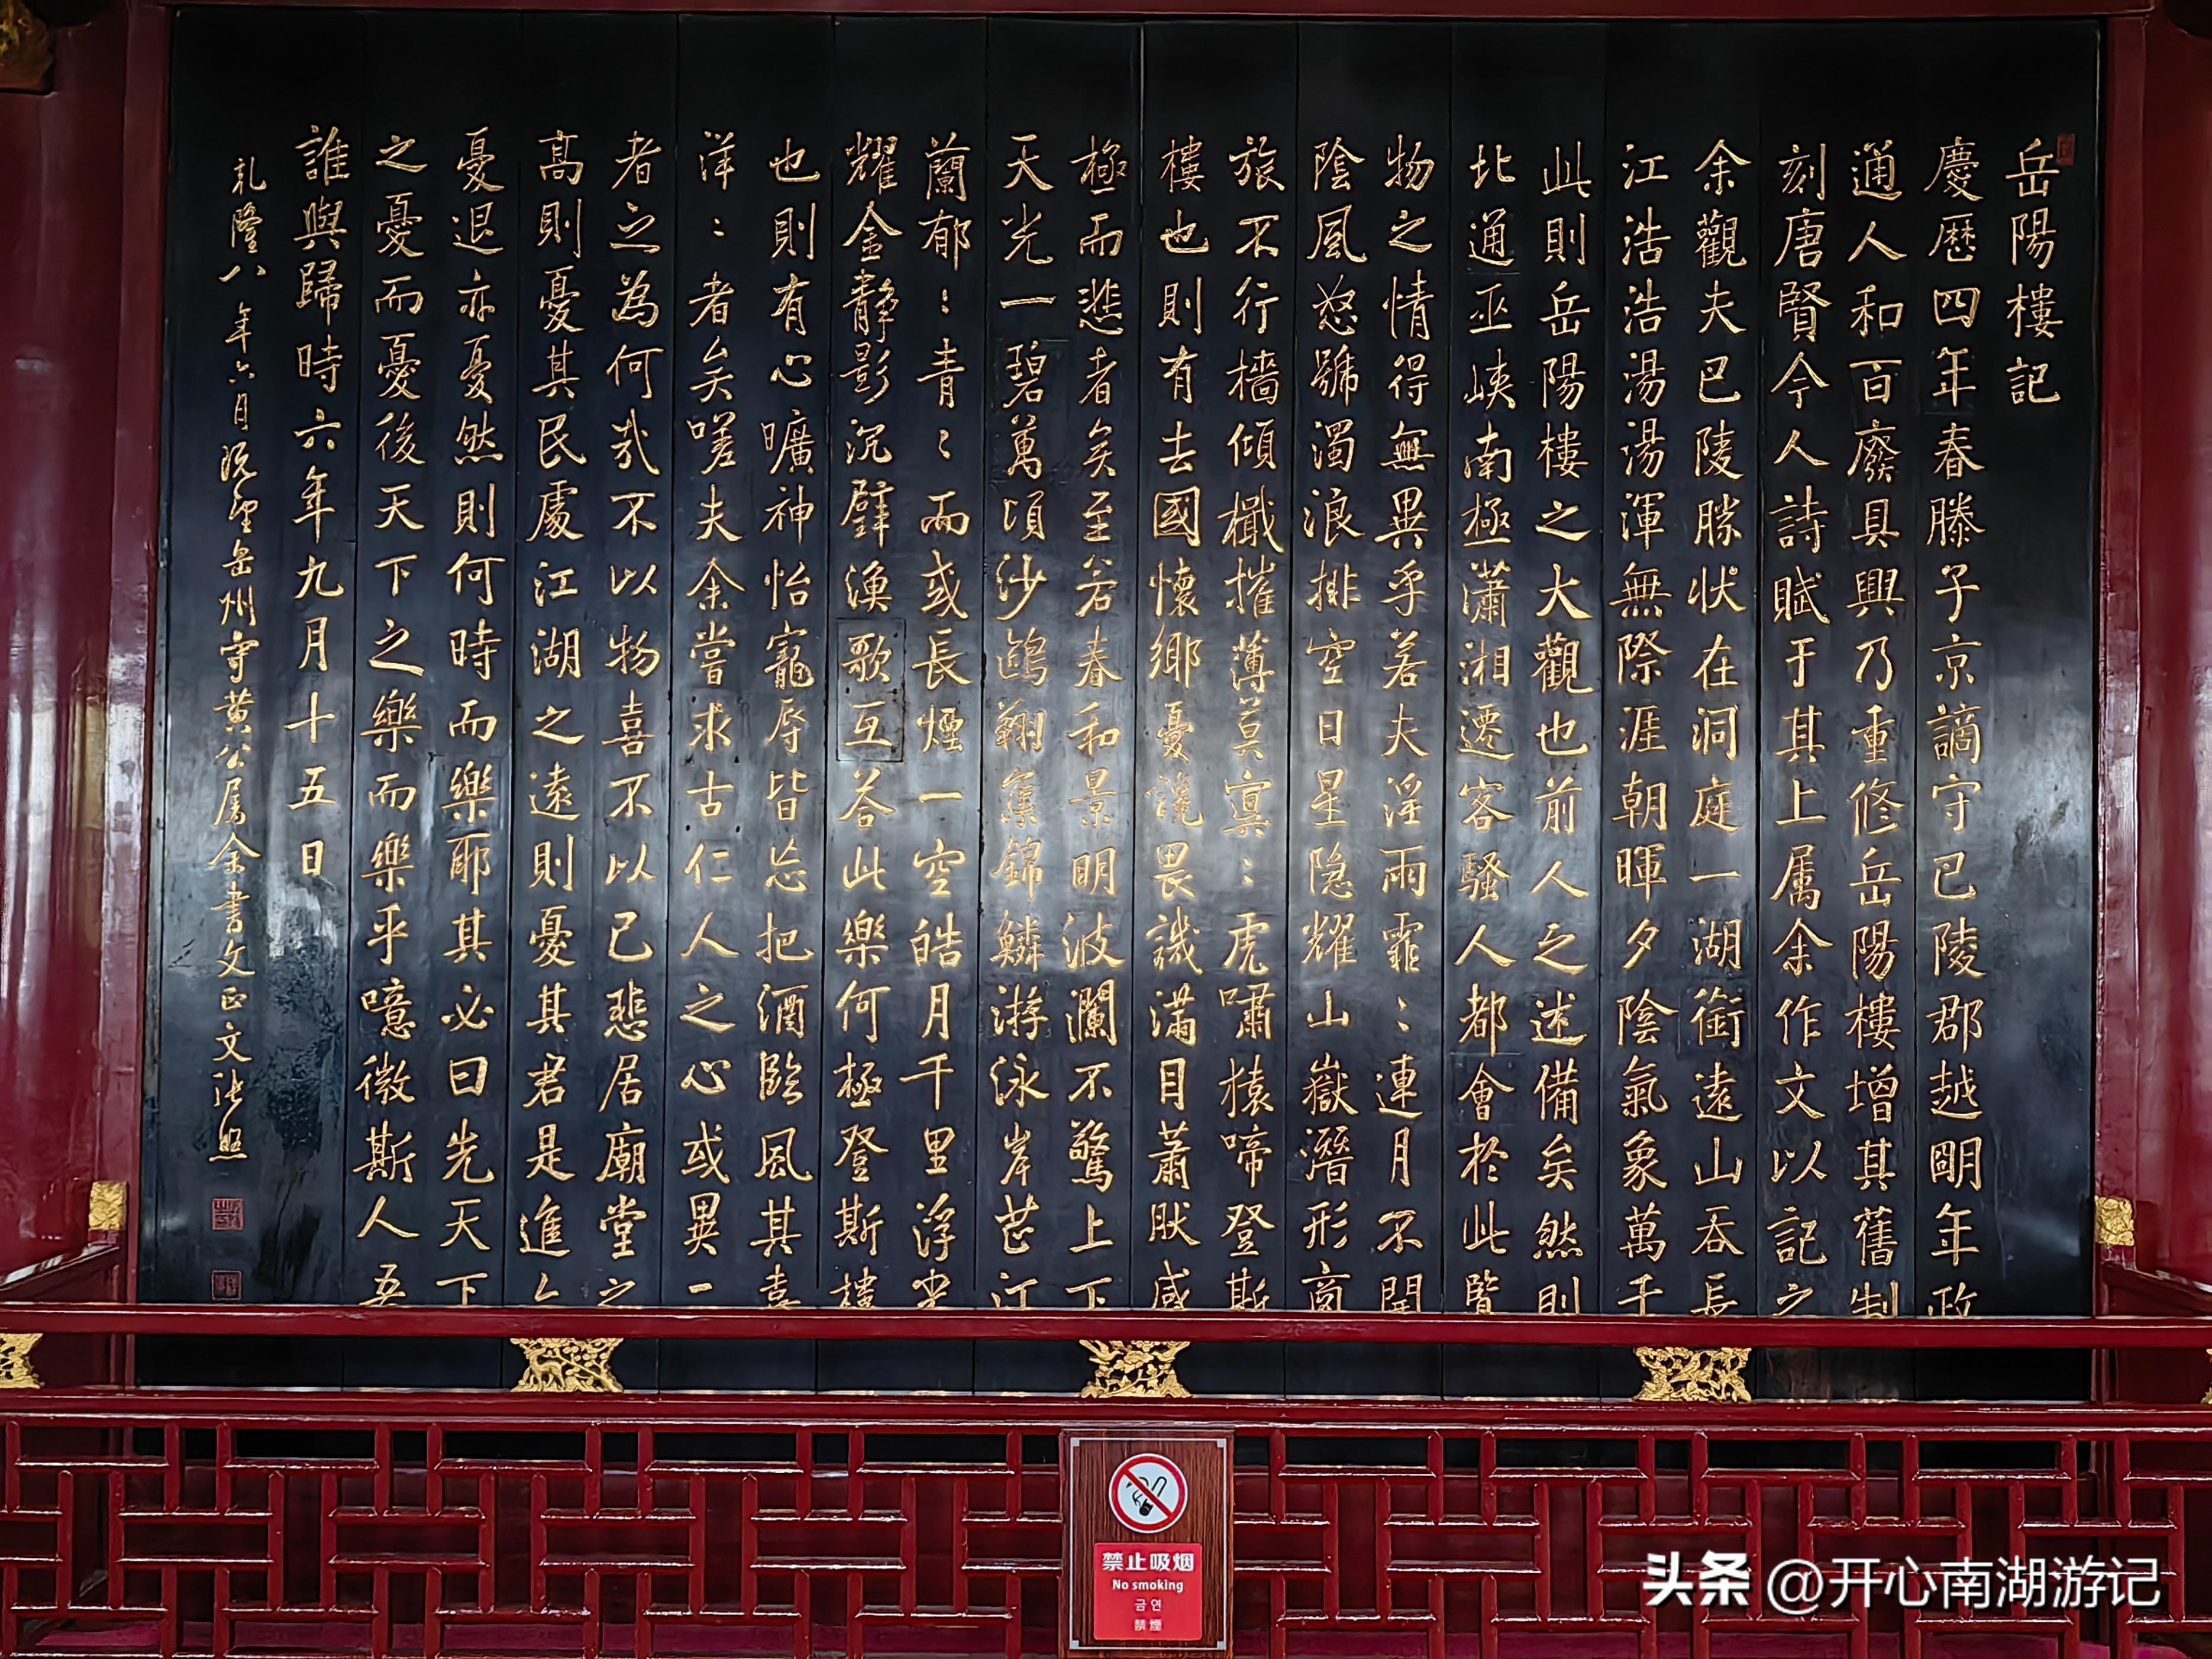 岳陽樓記
慶歷四年春滕子京謫守巴陵郡越明年政
通人和百廢具興乃重修岳陽樓增其舊制
刻唐賢今人詩賦于其上属余作文以記之
余觀夫巴陵勝状在洞庭一湖銜遠山吞長
江浩浩湯湯渾無際涯朝暉夕陰氣象萬千
此則岳陽樓之大觀也前人之述備矣然則
北通巫峽南極瀟湘遷客騷人都會於此覽
物之情得無異乎若夫淫雨霏〻連月不開
陰風怒號濁浪排空日星隐耀山嶽潛形商
旅不行檣傾檝摧薄莫冥〻虎嘯猿啼登斯
樓也則有去國懷鄉憂讒畏譏滿目蕭肰感
極而悲者矣至若春和景明波瀾不驚上下
天光一碧萬頃沙鷗翔集錦鱗游泳岸芷汀
蘭郁〻青〻而或長煙一空皓月千里浮光
耀金靜影沉璧漁歌互荅此樂何極登斯樓
也則有心曠神怡寵辱皆忘把酒臨風其喜
洋〻者矣嗟夫余嘗求古仁人之心或異二
者之為何哉不以物喜不以己悲居廟堂之
高則憂其民處江湖之遠則憂其君是進亦
憂退亦憂然則何時而樂耶其必曰先天下
之憂而憂後天下之樂而樂乎噫微斯人吾
誰與歸時六年九月十五日
乹隆八年六月沅望岳州守黄公属余書文正文張照
禁止吸烟
No smoking
금연
禁煙
头条 @开心南湖游记